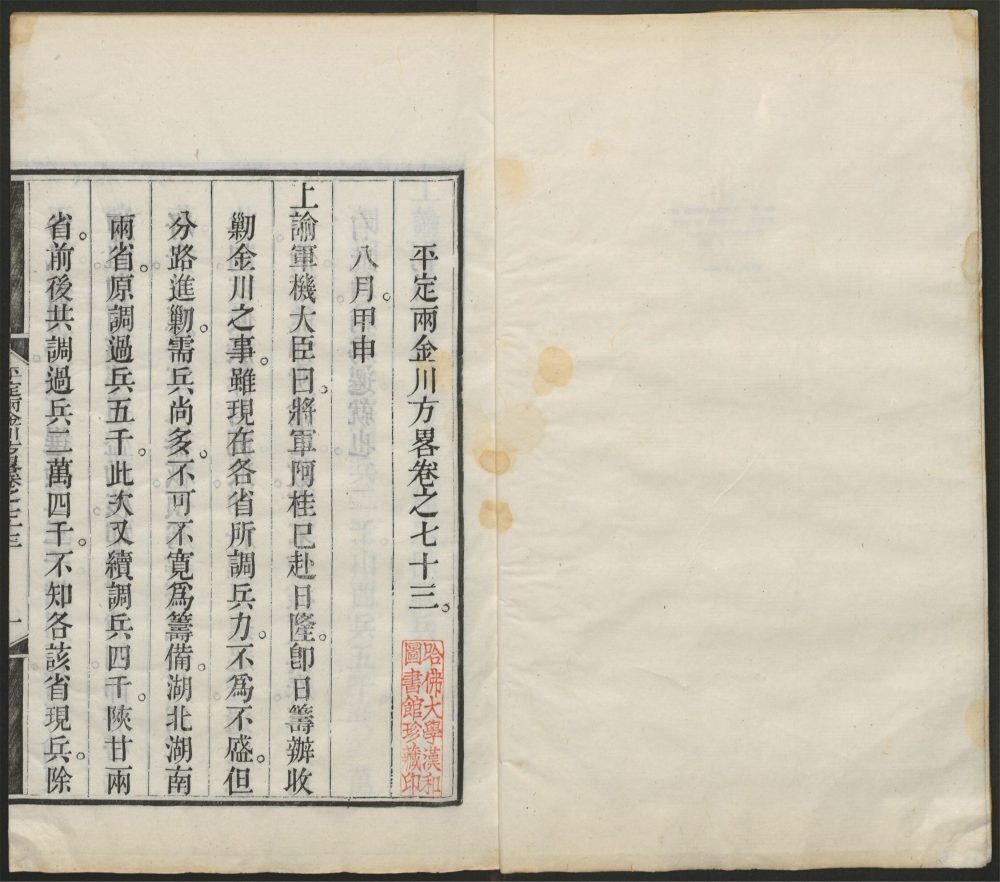 平定兩金川方畧卷之七十三。
八月。甲申
上諭軍機大臣曰。將軍阿桂已赴日隆。卽日籌辦收
勦金川之事。雖現在各省所調兵力。不爲不盛。但
分路進勦。需兵尚多。不可不寛爲籌備。湖北湖南
兩省。原調過兵五千。此次又續調兵四千。陝甘兩
省。前後共調過兵二萬四千。不知各該省現兵。除
哈佛大學漢和
圖書館珍藏印
平定兩金川方畧卷之七十三
一